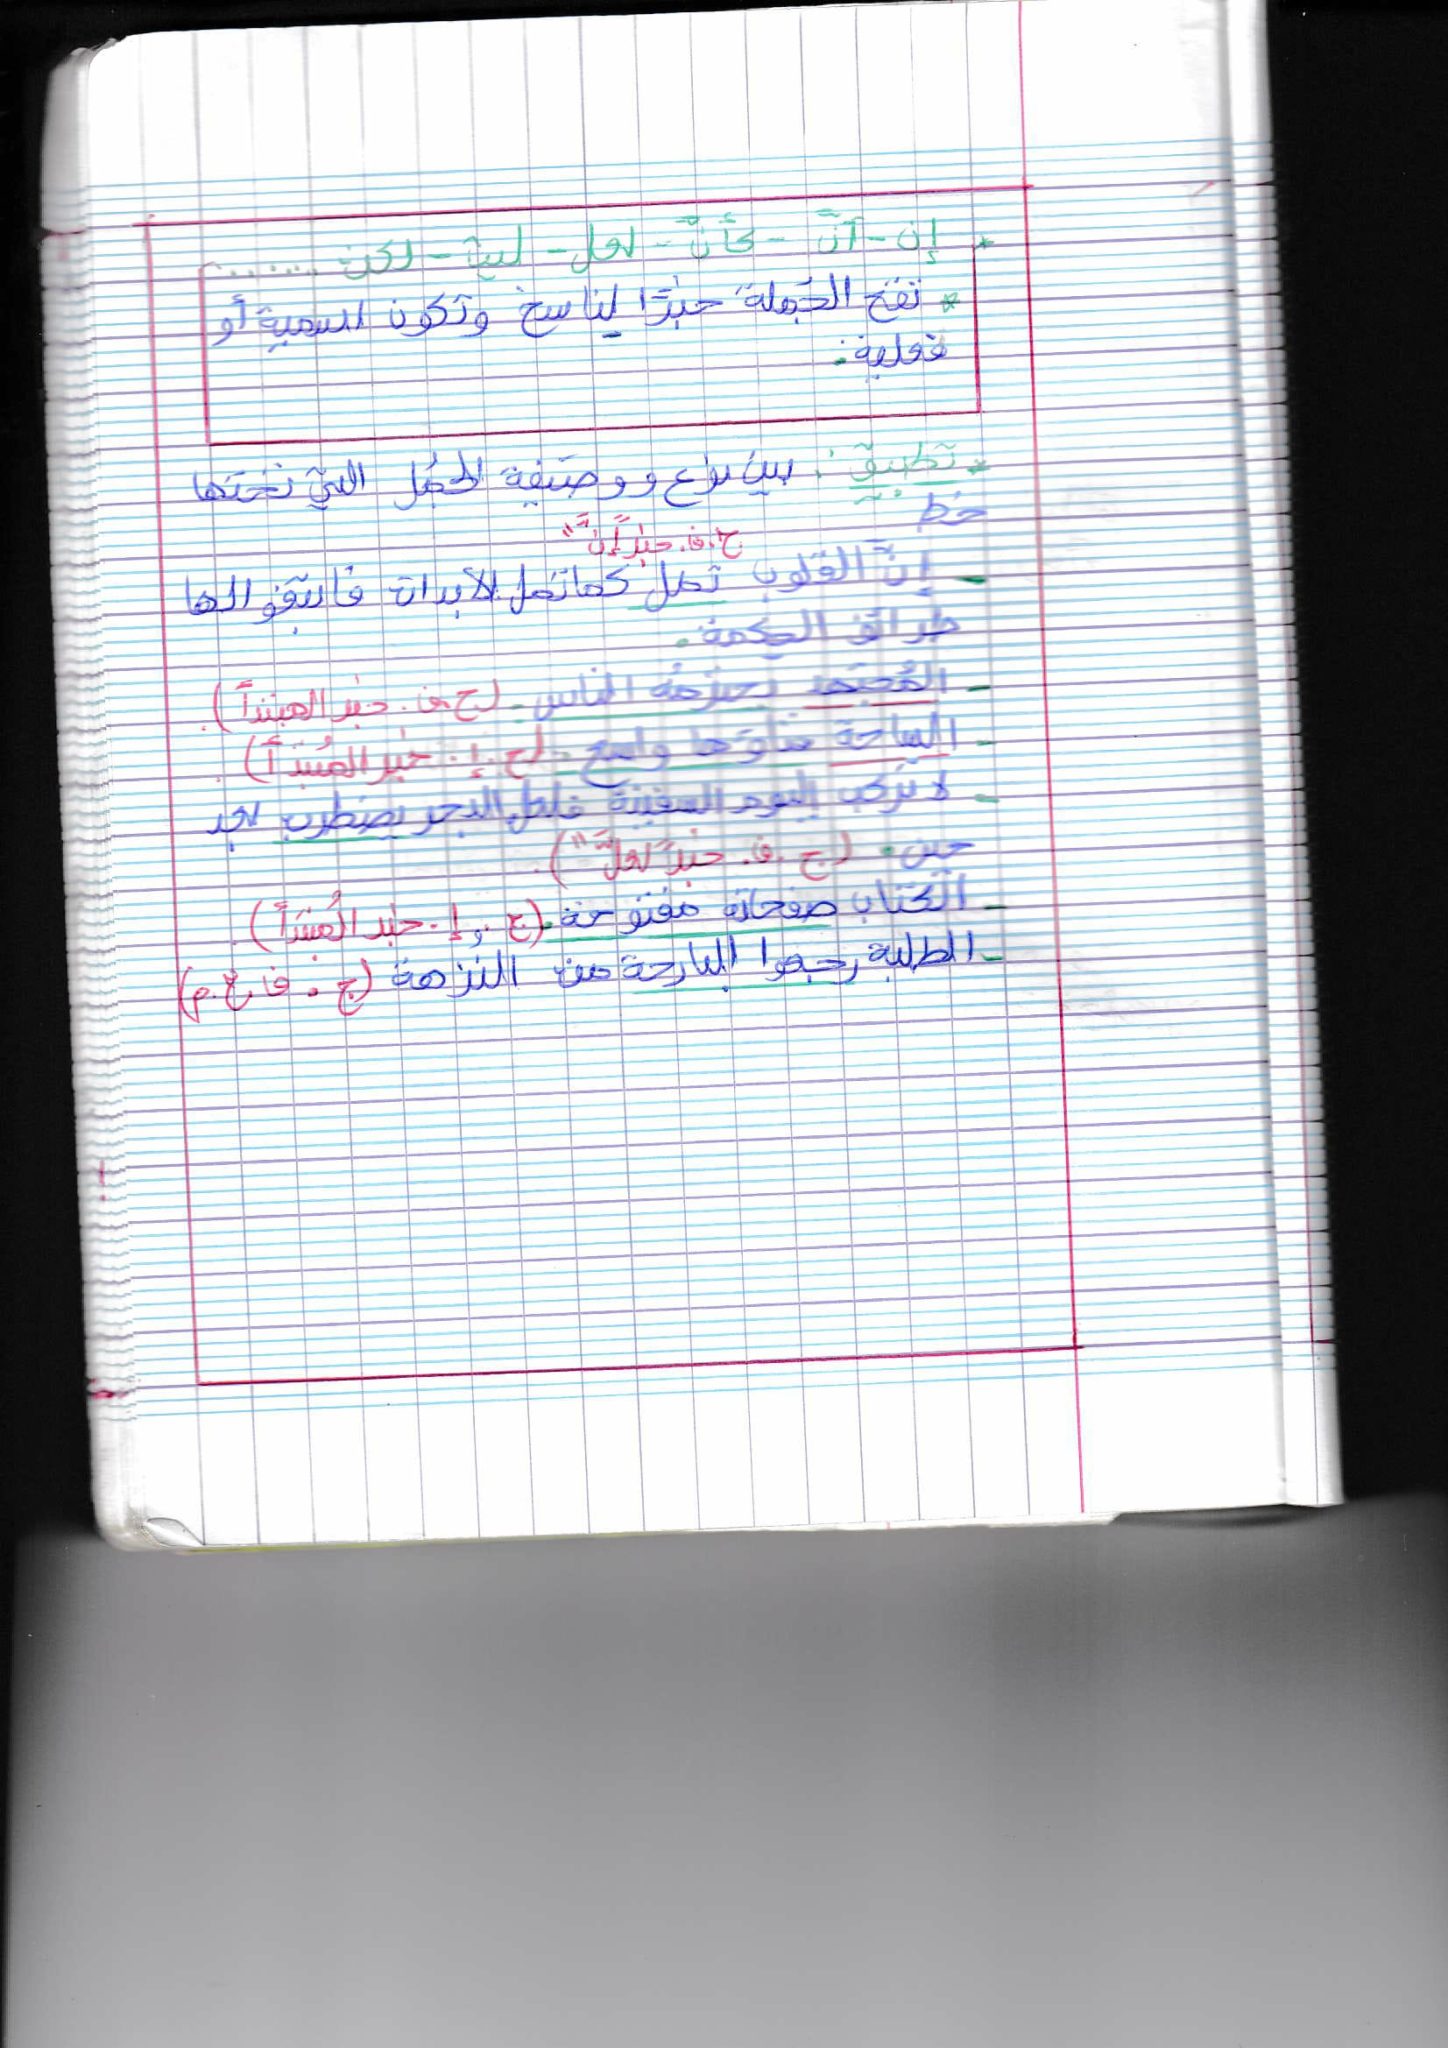 * إن - أنّ - كأنّ - لعل - ليت - لكن ......
* تقع الجُملة خبرًا لناسخ وتكون اسمية أو
فعلية.
* تطبيق : بين نوع ووضيفة الجُمل التي تحتها
خط
ج.ف. خبر "إنّ"
- إنّ القلوب تمل كما تمل الأبدان فابتغوا لها
طرائق الحكمة.
- المُجتهد يحترمُه الناس (ج.ف. خبر المبتدأ).
- الساحة واسع (ج.إ. خبر المُبتدأ).
- لا تركب اليوم السفينة فلعل البحر يضطرب بعد
حين. (ج.ف. خبر "لعلّ").
- الكتاب صفحاته مفتوحة. (ج.إ. خبر المُبتدأ).
- الطلبة رجعوا البارحة من النزهة (ج.ف.خ.م)